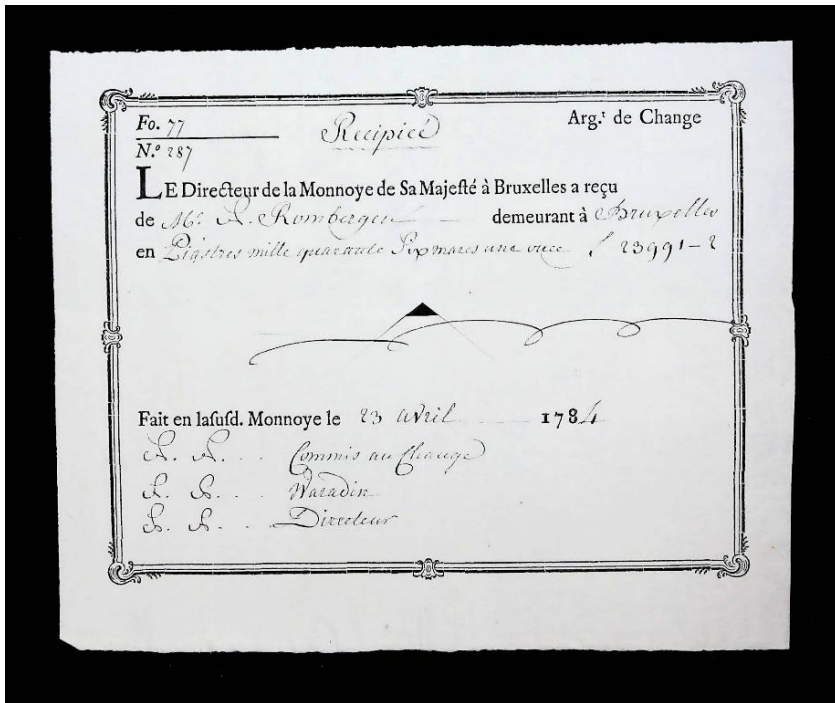 Fo. 77
Recipicé
Arg.t de Change
N.o 287
LE Directeur de la Monnoye de Sa Majeſté à Bruxelles a reçu
de Mr. Rombergen demeurant à Bruxelles
en Piaſtres mille quarante Six marcs une once ƒ 23991-2
Fait en laſuſd. Monnoye le 23 avril 1784
Commis au Change
Waradin
Directeur